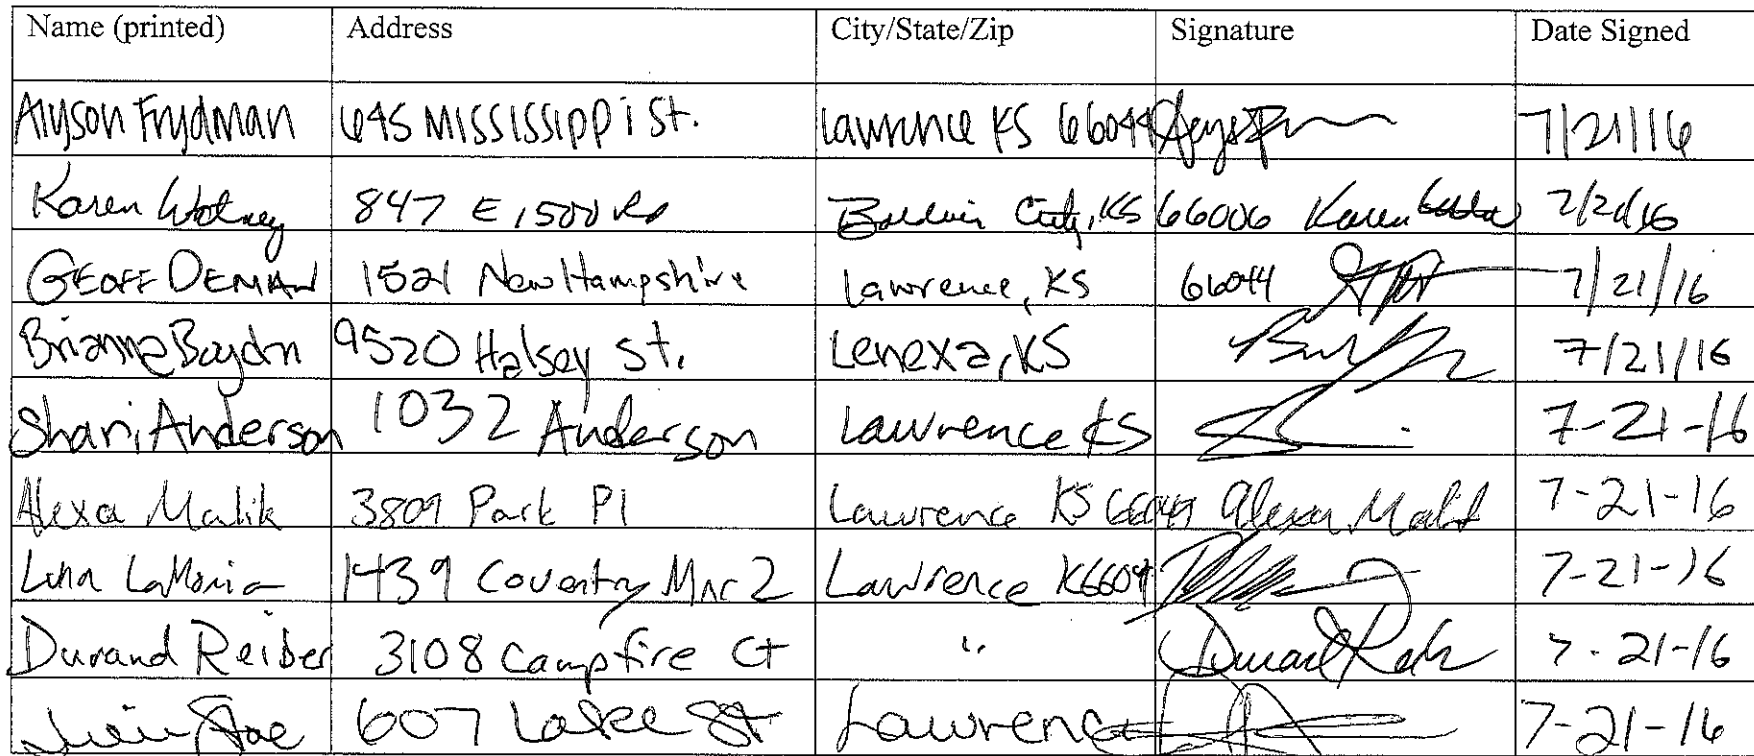 Name (printed) Address City/State/Zip Signature Date Signed
Alyson Frydman 645 Mississippi St. Lawrence KS 66044 7/21/16
Karen 847 E 1500 Rd Baldwin City, KS 66006 Karen 7/21/16
GEOFF DEMAN 1521 New Hampshire Lawrence, KS 66044 7/21/16
Brianna Boydn 9520 Halsey St. Lenexa, KS 7/21/16
Shari Anderson 1032 Anderson Lawrence KS 7-21-16
Alexa Malik 3809 Park Pl Lawrence KS 66049 Alexa Malik 7-21-16
1439 Coventry Mnr 2 Lawrence 7-21-16
Durand Reiber 3108 Campfire Ct " Durand Reiber 7-21-16
607 Lake St Lawrence 7-21-16